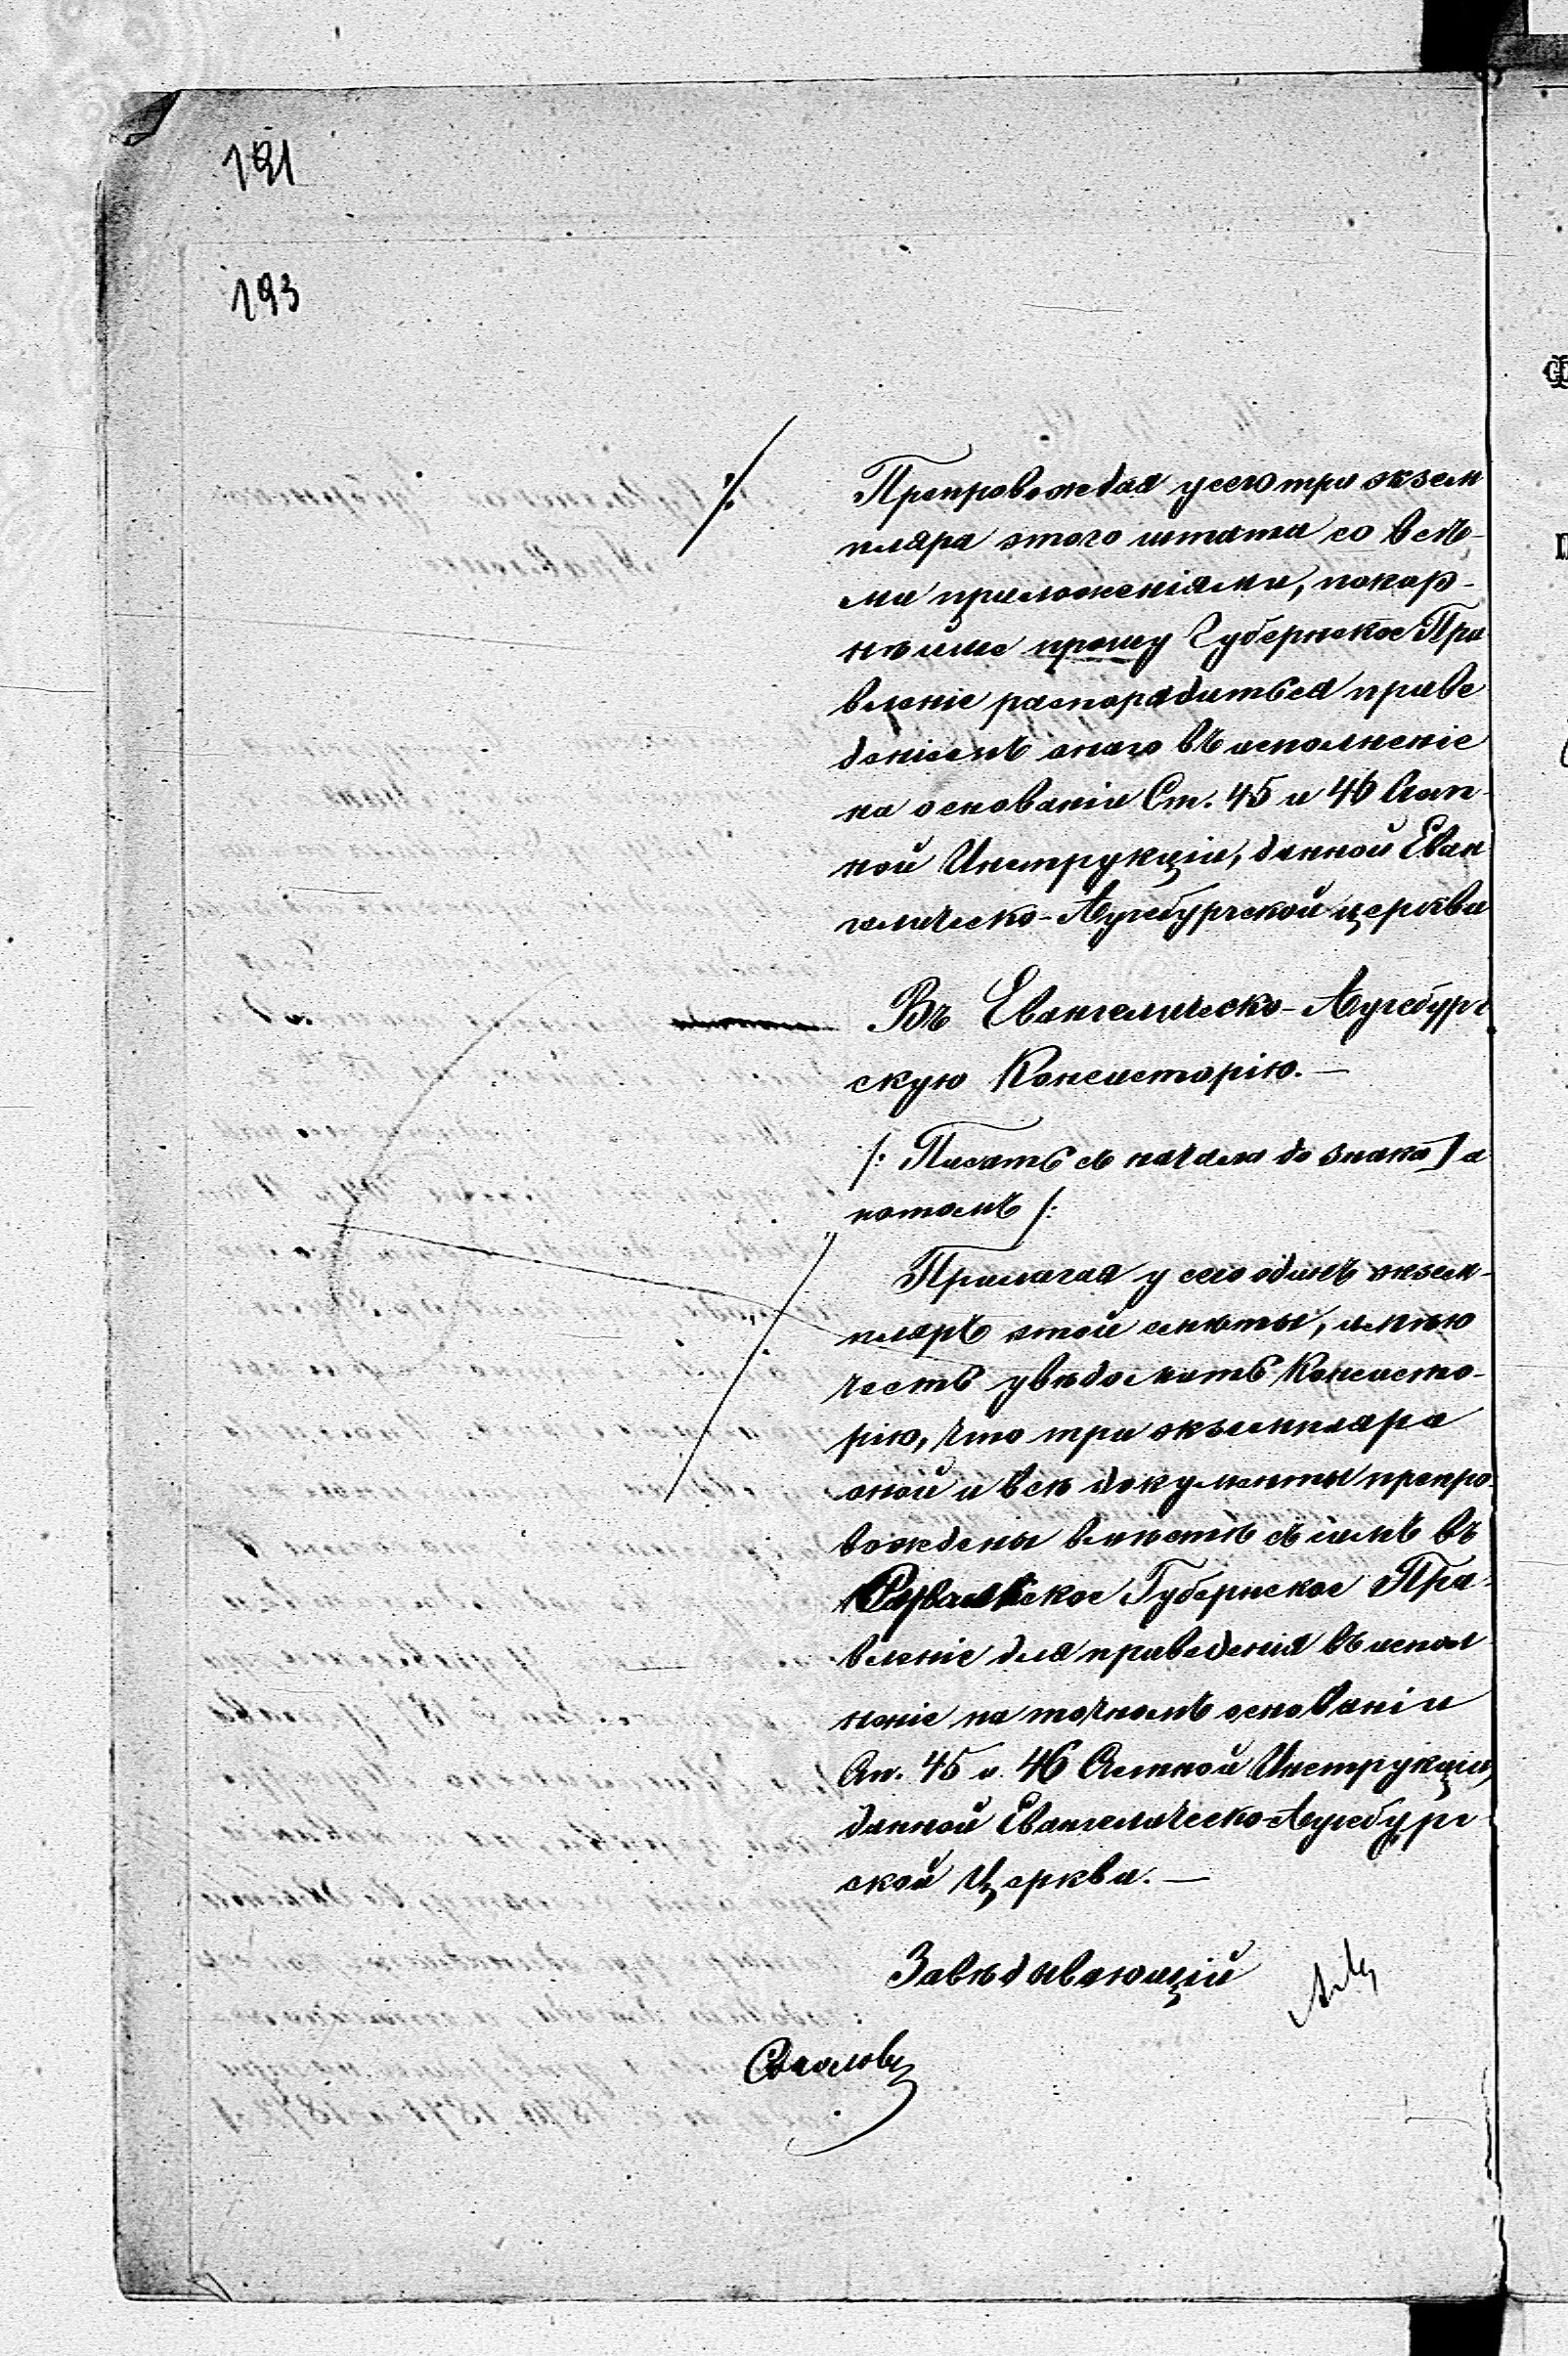 191
193
Препровождая у сего три экзем
пляра этого штата со всѣ-
ми приложеніями, покор-
нѣйше прошу Губернское Пра
вленіе распорядиться приве
деніемъ онаго въ исполненіе
на основаніи Ст. 45 и 46
ной Инструкціи, данной Еван
гелическо-Аугсбургской церкви
Въ Евангелическо-Аугсбург
скую Консисторію.—
/: Писать съ начала до знака ] а
потомъ /:
Прилагая у сего одинъ экзем-
пляръ этой смѣты, имѣю
честь увѣдомить Консисто-
рію, что три экземпляра
оной и всѣ документы препро-
вождены вмѣстѣ съ симъ въ
Сувалкское Губернское Пра-
вленіе для приведенія въ испол
неніе на точномъ основаніи
Ст. 45 и 46 Инструкціи,
данной Евангелическо-Аугсбург
ской Церкви.—
Завѣдывающій
Соколовъ